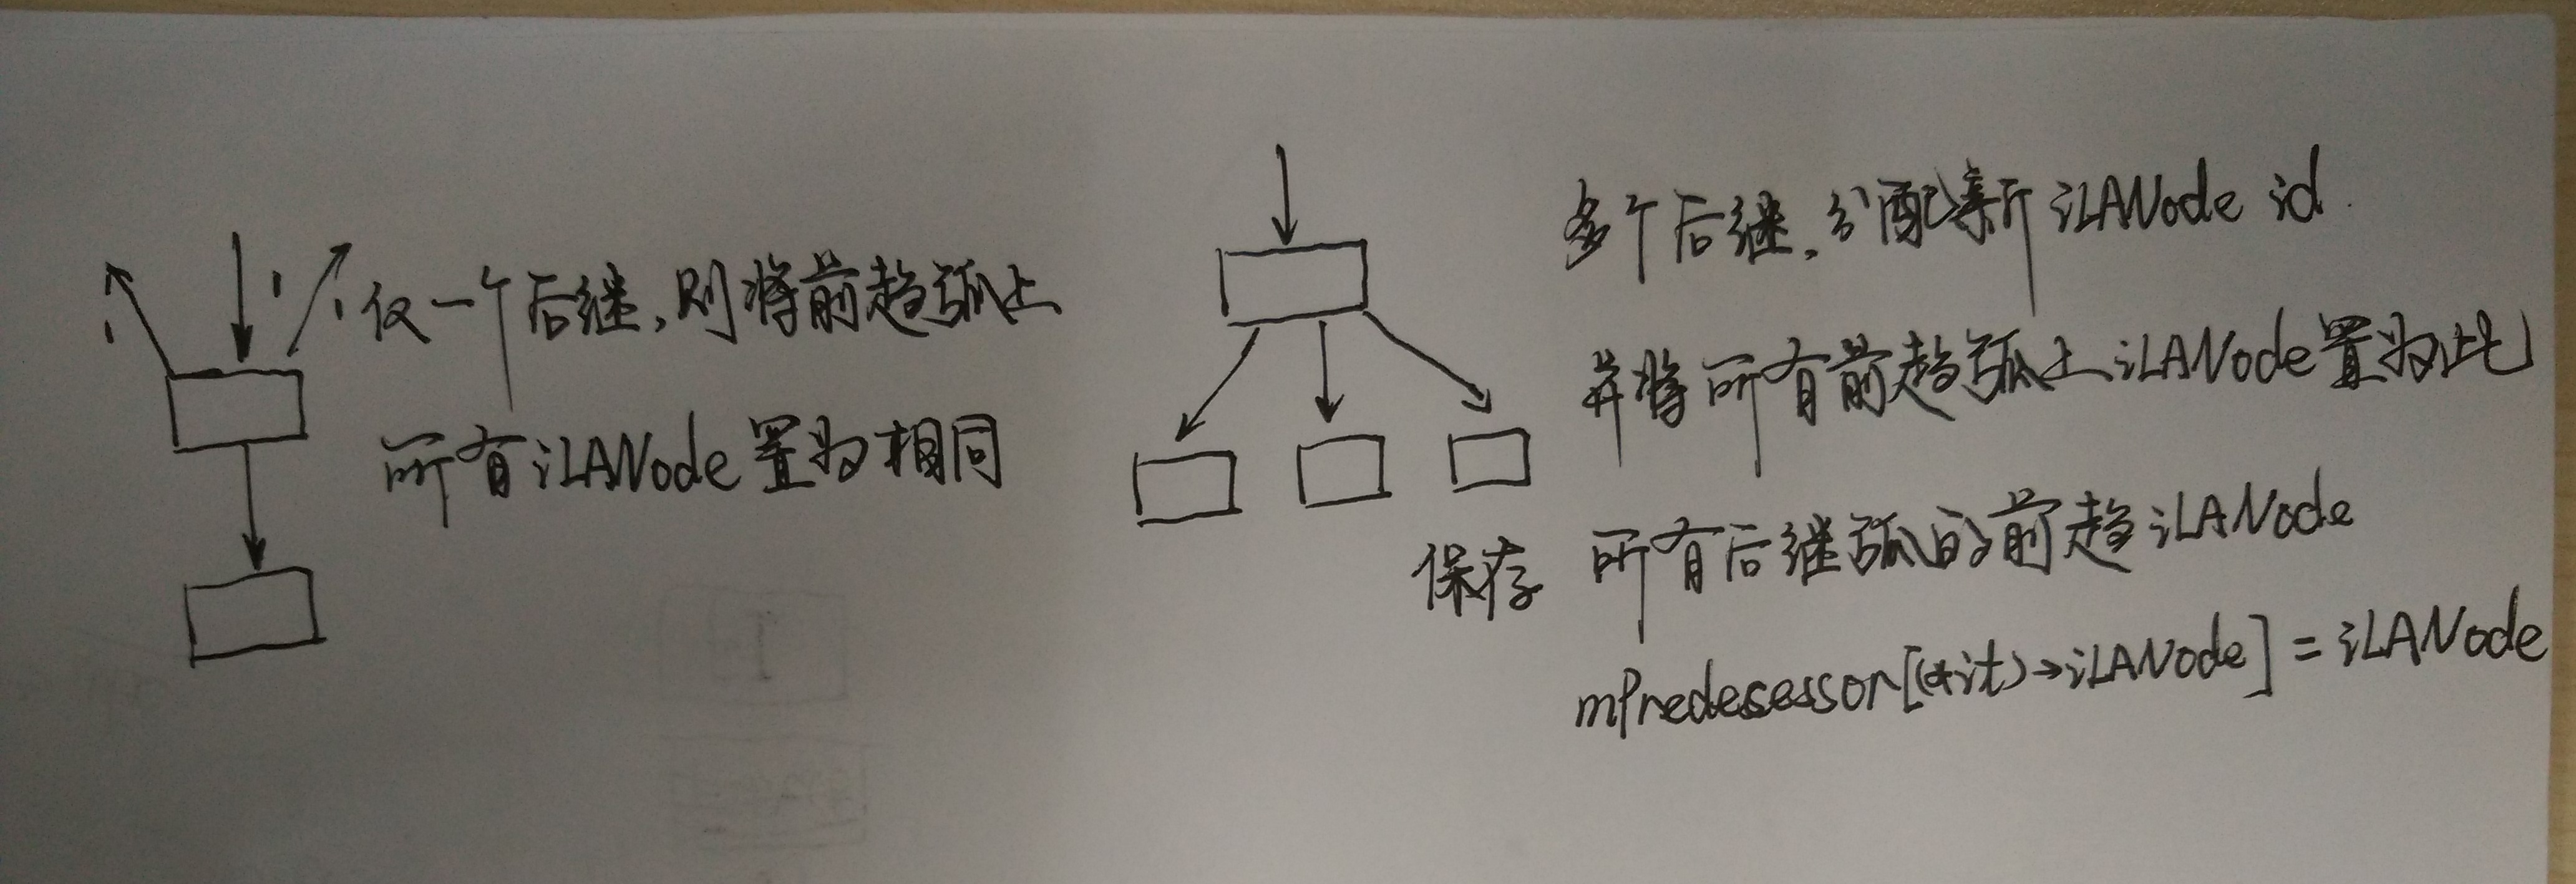 仅一个后继,则将前趋弧上
所有iLANode置为相同
多个后继,分配新iLANode id.
并将所有前趋弧上iLANode置为此
保存 所有后继弧的前趋iLANode
mPredesessor[(*it)→iLANode] = iLANode